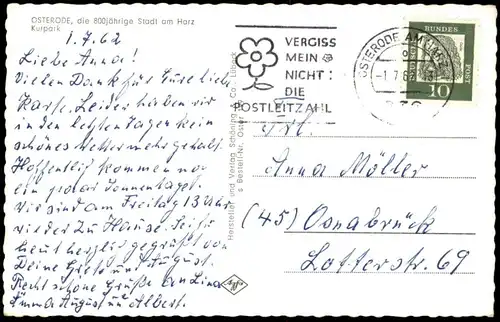 OSTERODE, die 800jährige Stadt am Harz
Kurpark
1.7.62
Liebe Anna!
Vielen Dank für Eure liebe
Karte. Leider haben wir
in den letzten Tagen kein
schönes Wetter mehr gehabt.
Hoffentlich kommen noch
ein paar Sonnentage.
Wir sind am Freitag 13 Uhr
wieder zu Hause. Sei
heute herzlich gegrüßt von
Deine Grete und August.
Recht schöne Grüße an Lina
Emma August und Albert.
Hersteller und Verlag Schöning & Co., Lübeck
Bestell-Nr. Oster
VERGISS
MEIN
NICHT:
DIE
POSTLEITZAHL
OSTERODE AM HARZ
-1.7.62
DEUTSCHE BUNDESPOST
10
Frl.
Anna Möller
(45) Osnabrück
Lotterstr. 69